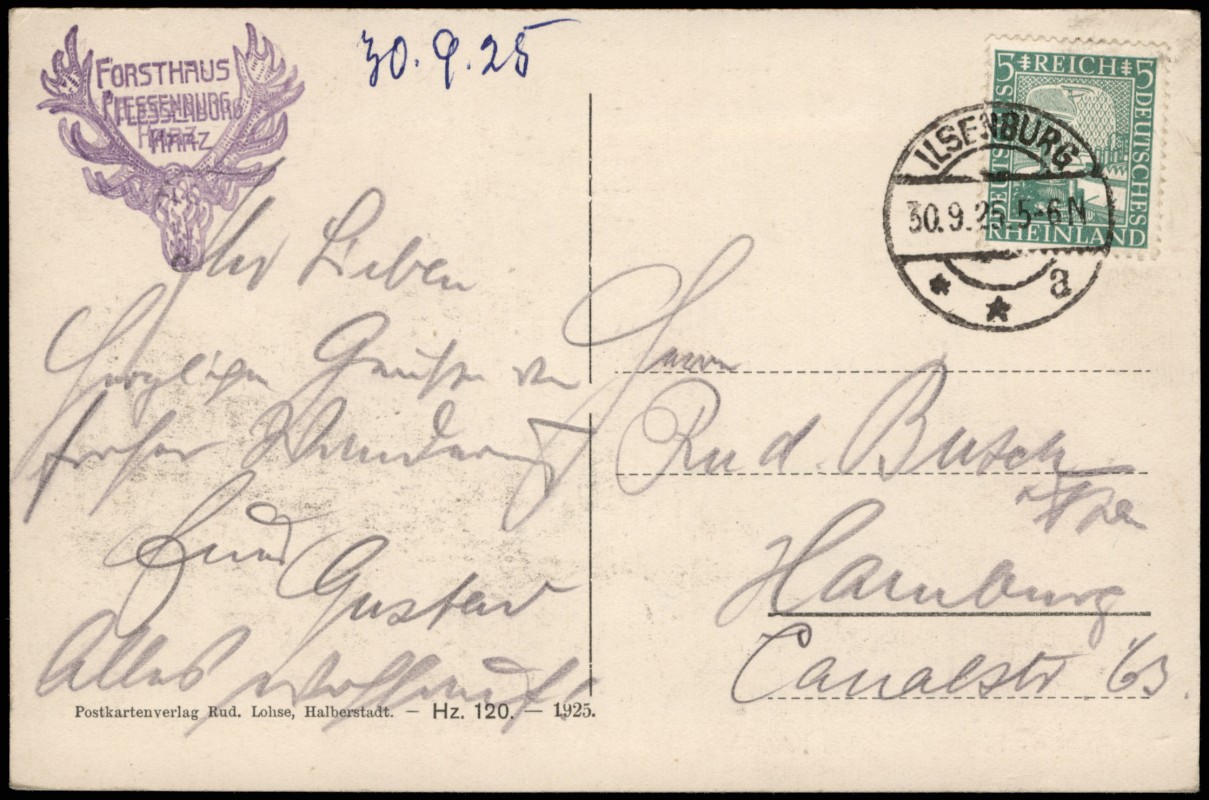 30.9.25
FORSTHAUS
PLESSENBURG
HARZ
5 REICH 5
DEUTSCHES
DEUTSCHES
RHEINLAND
ILSENBURG
30.9.25. 5-6 N
* * a
Ihr Lieben
Herzlichen Grüße von
froher Wanderung
Euer
Gustav
Alles wohlauf!
Herrn
Rud. Busch
Hamburg
Canalstr. 63.
Postkartenverlag Rud. Lohse, Halberstadt. — Hz. 120. — 1925.